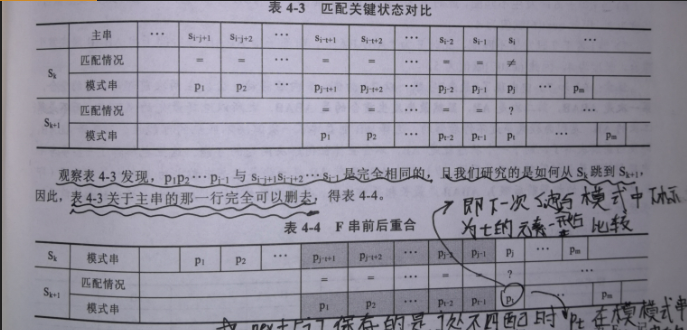 表 4-3 匹配关键状态对比
主串 … s_{i-j+1} s_{i-j+2} … s_{i-t+1} s_{i-t+2} … s_{i-2} s_{i-1} s_i …
S_k 匹配情况 = = … = = … = = ≠
模式串 p_1 p_2 … p_{j-t+1} p_{j-t+2} … p_{j-2} p_{j-1} p_j … p_m
S_{k+1} 匹配情况 = = … = = ?
模式串 p_1 p_2 … p_{t-2} p_{t-1} p_t … p_m
观察表 4-3 发现，p_1p_2…p_{j-1} 与 s_{i-j+1}s_{i-j+2}…s_{i-1} 是完全相同的，且我们研究的是如何从 S_k 跳到 S_{k+1}，
因此，表 4-3 关于主串的那一行完全可以删去，得表 4-4。
即下一次 模式中下标
为t的元素 比较
表 4-4 F 串前后重合
S_k 模式串 p_1 p_2 … p_{j-t+1} p_{j-t+2} … p_{j-2} p_{j-1} p_j … p_m
S_{k+1} 匹配情况 = = … = = ?
模式串 p_1 p_2 … p_{t-2} p_{t-1} p_t … p_m
保存的是 处不匹配时 p_t 在模式串